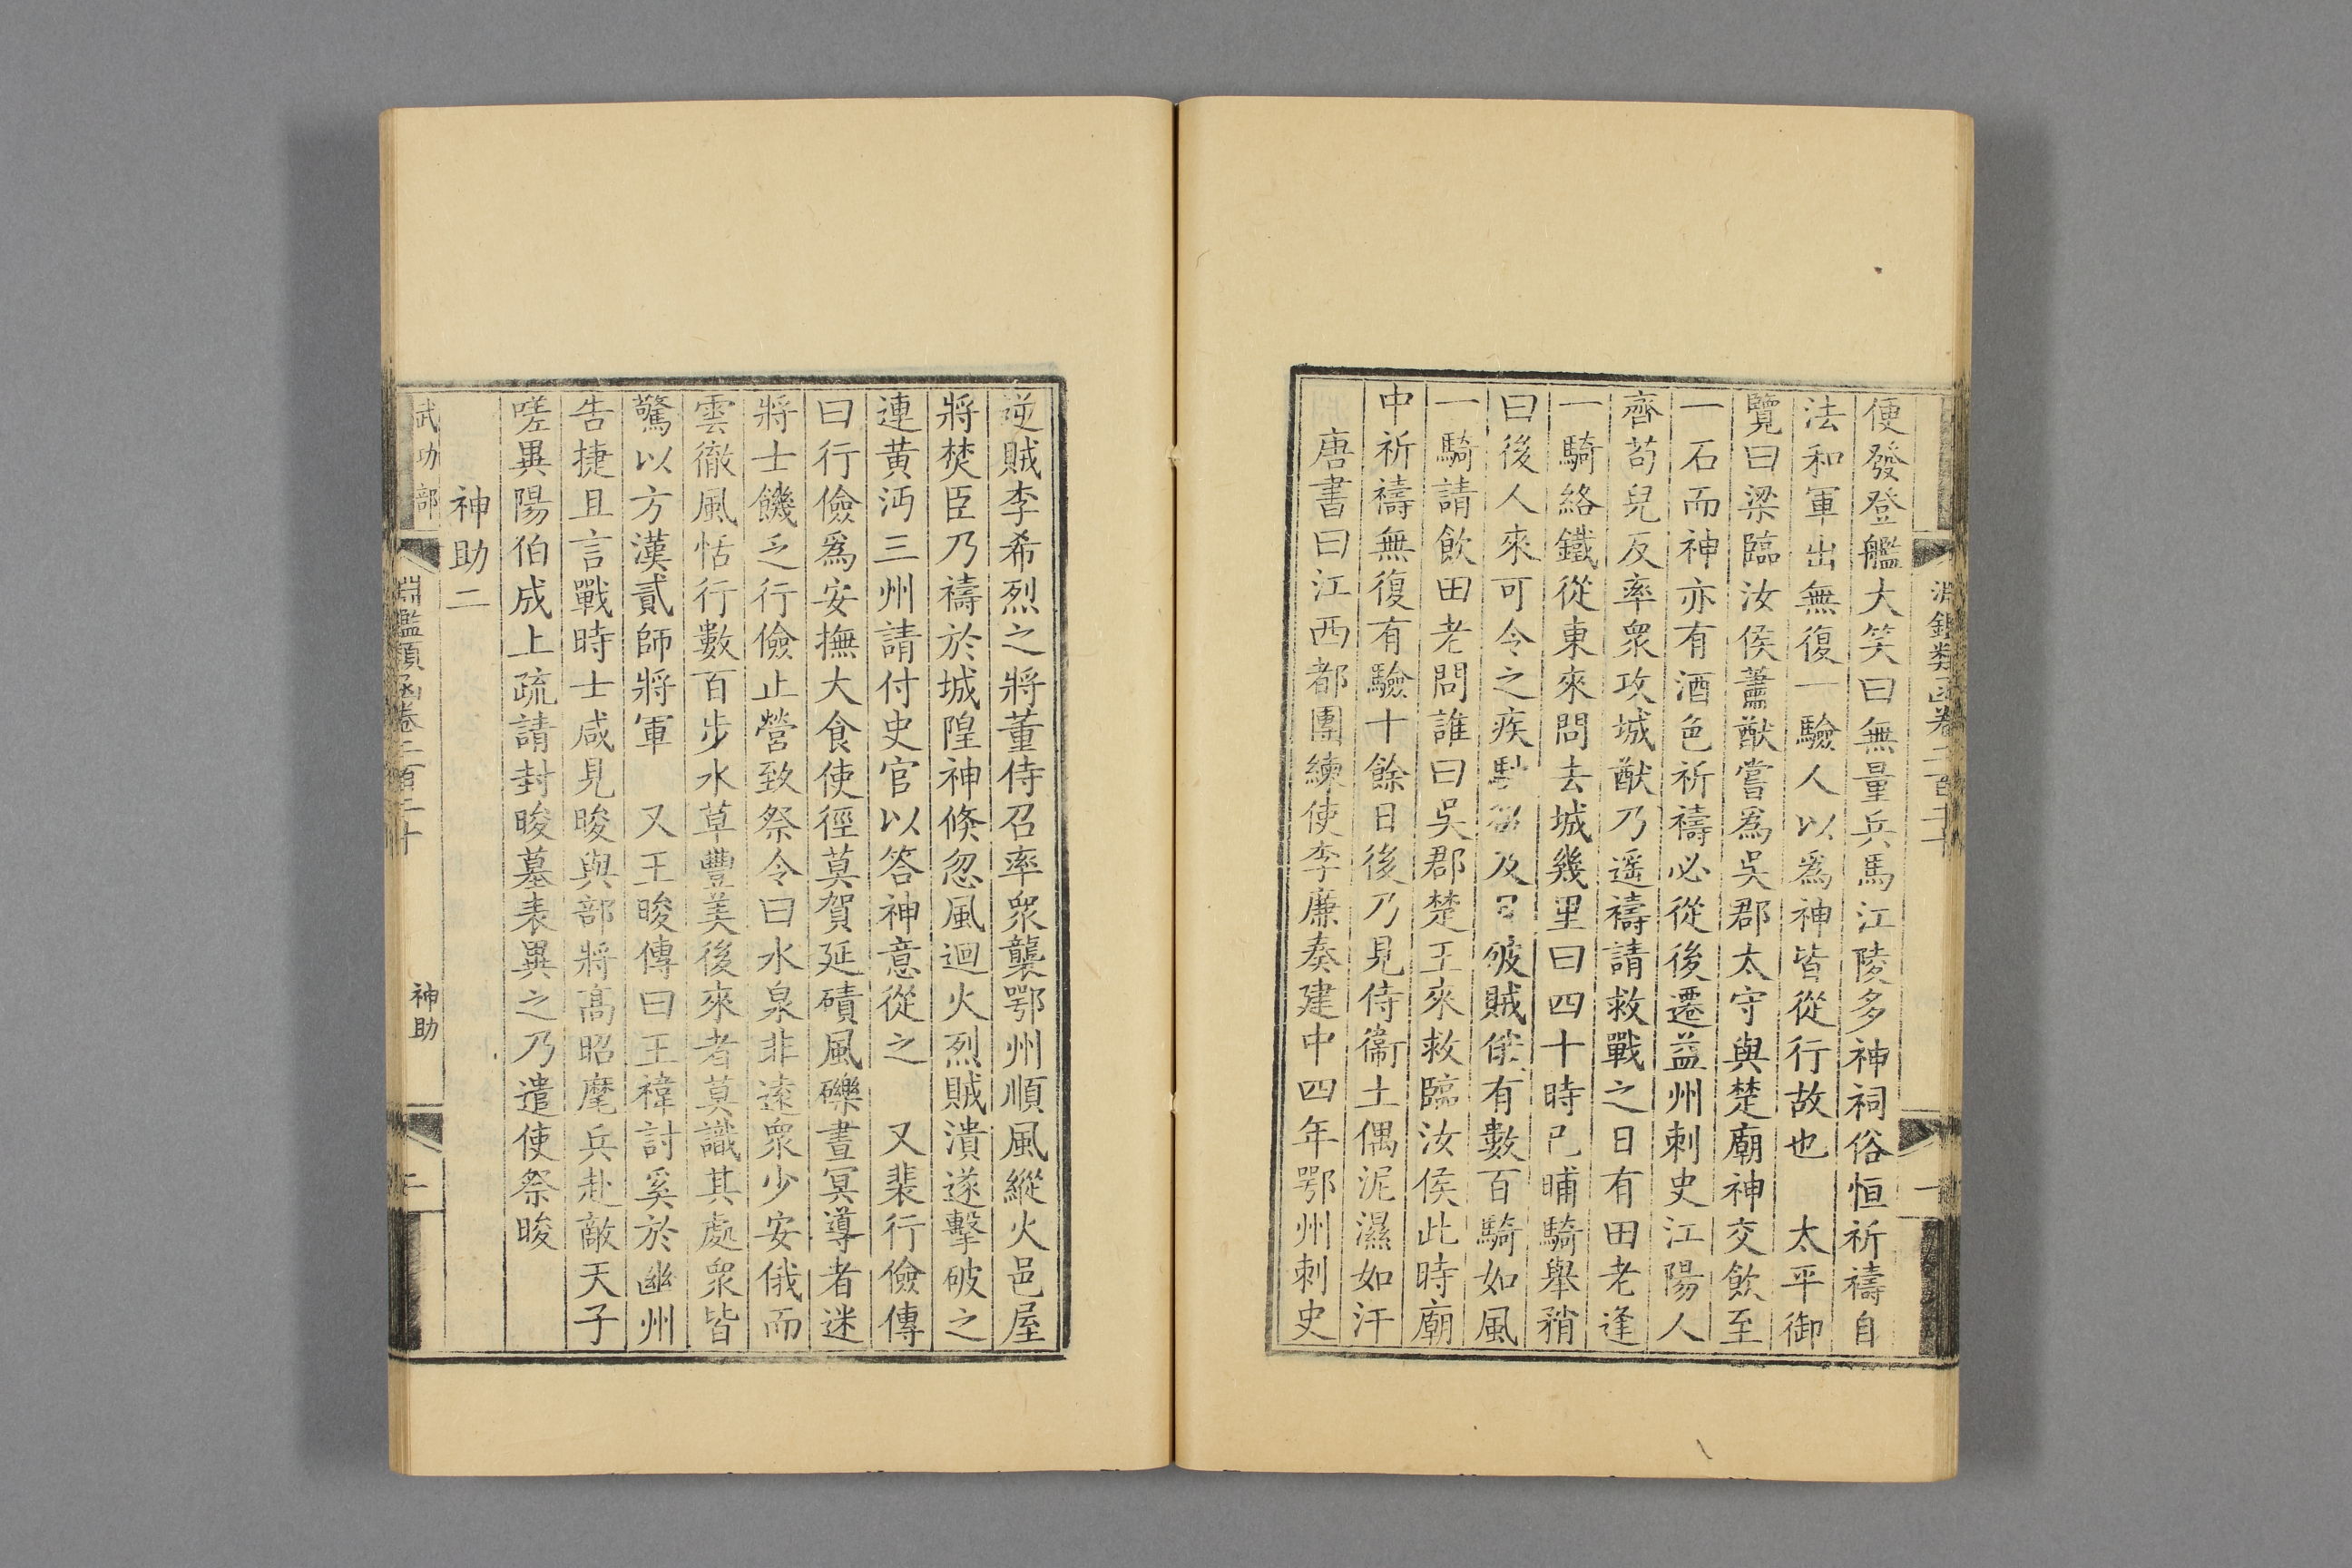 便發登艦大笑曰無量兵馬江陵多神祠俗恒祈禱自
法和軍出無復一驗人以爲神皆從行故也　太平御
覽曰梁臨汝侯蕭猷嘗爲吳郡太守與楚廟神交飲至
一石而神亦有酒色祈禱必從後遷益州刺史江陽人
齊苟兒反率眾攻城猷乃遥禱請救戰之日有田老逢
一騎絡鐵從東來問去城幾里曰四十時已晡騎舉矟
曰後人來可令之疾 及 破賊俄有數百騎如風
一騎請飲田老問誰曰吳郡楚王來救臨汝侯此時廟
中祈禱無復有驗十餘日後乃見侍衞土偶泥濕如汗
唐書曰江西都團練使李廉奏建中四年鄂州刺史
逆賊李希烈之將董侍召率眾襲鄂州順風縱火邑屋
將焚臣乃禱於城隍神倏忽風迴火烈賊潰遂擊破之
連黄沔三州請付史官以答神意從之　又裴行儉傳
曰行儉爲安撫大食使徑莫賀延磧風礫晝冥導者迷
將士饑乏行儉止營致祭令曰水泉非遠眾少安俄而
雲徹風恬行數百步水草豐美後來者莫識其處眾皆
驚以方漢貳師將軍　又王晙傳曰王褘討奚於幽州
告捷且言戰時士咸見晙與部將高昭麾兵赴敵天子
嗟異陽伯成上疏請封晙墓表異之乃遣使祭晙
神助二
武功部
淵鑑類函卷二百二十
神助
二